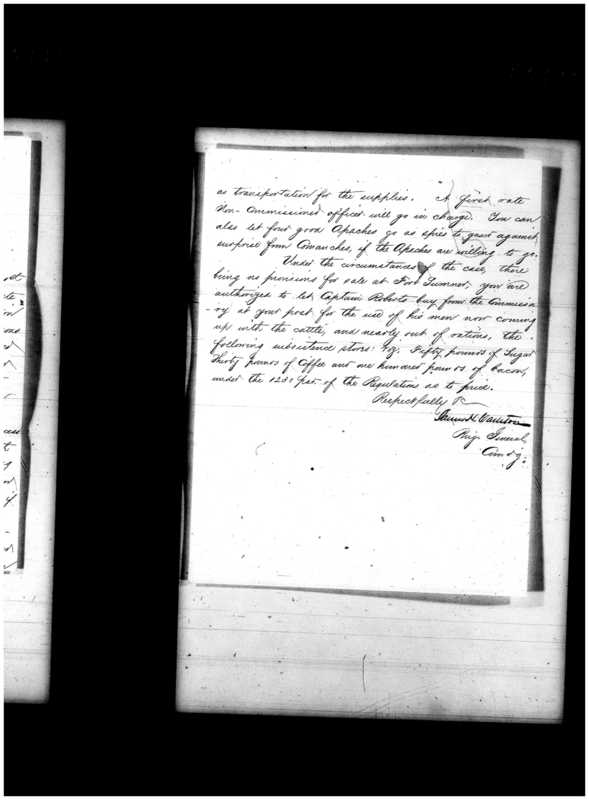 as transportation for the supplies. A first rate
Non-Commissioned officer will go in charge. You can
also let four good Apaches go as spies to guard against
surprise from Comanches, if the Apaches are willing to go.
Under the circumstances of the case, there
being no provisions for sale at Fort Sumner, you are
authorized to let Captain Roberts buy from the Commissa-
-ry at your post for the use of his men now coming
up with the cattle, and nearly out of rations, the
following subsistence stores: viz. Fifty pounds of Sugar
Thirty pounds of Coffee and one hundred pounds of bacon,
under the 1231 par. of the Regulations as to price.
Respectfully
James H. Carleton
Brig. General,
Comd'g.